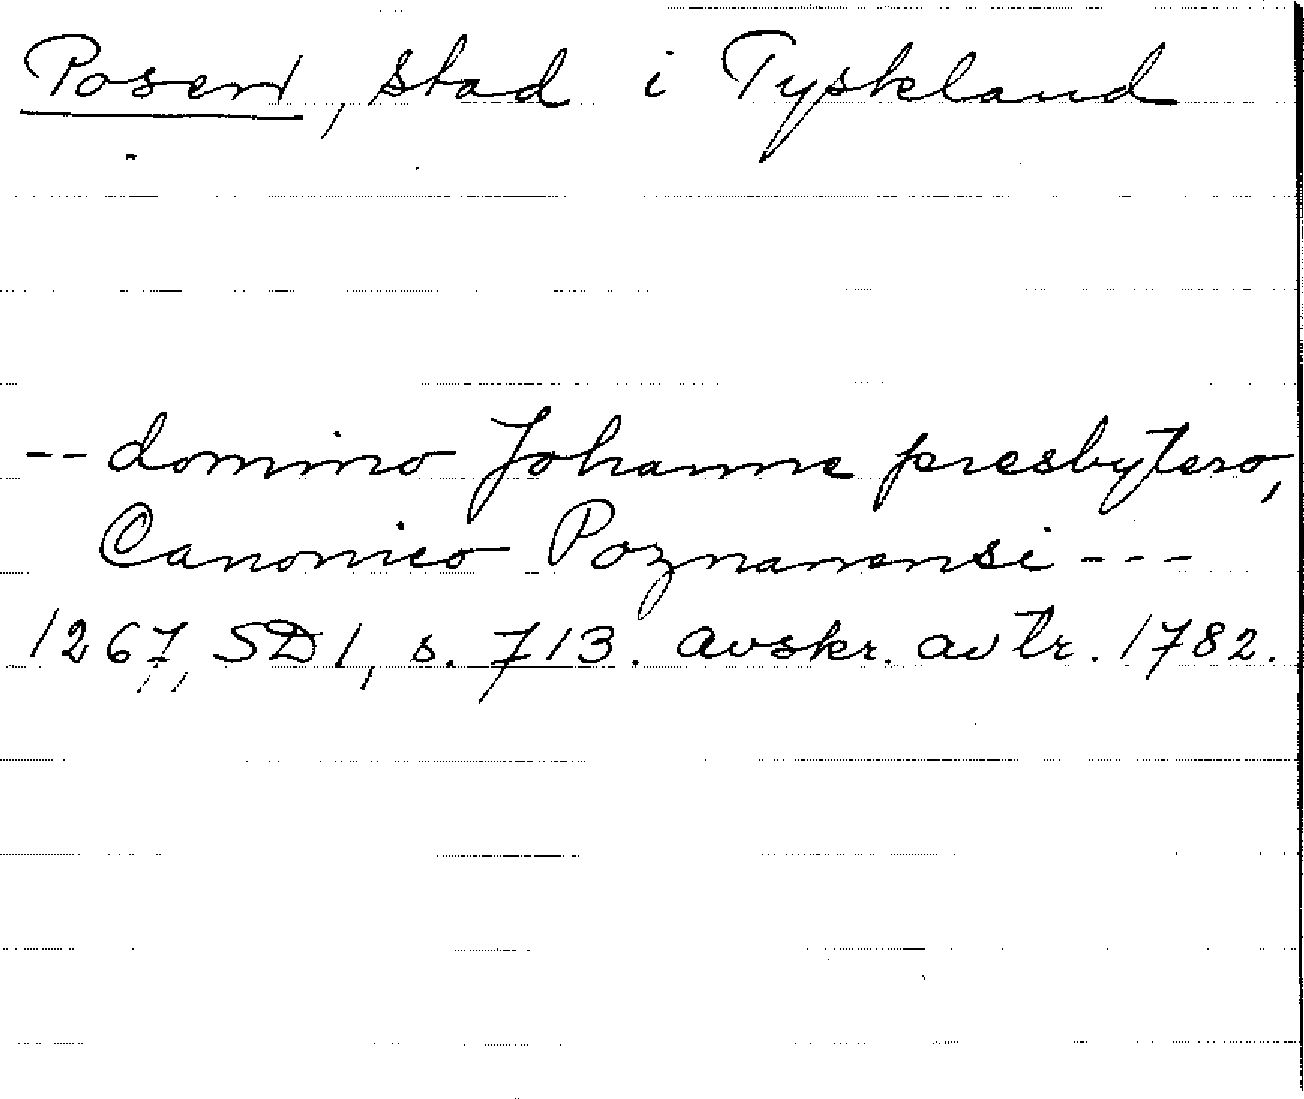 Posen, stad i Tyskland
-- domino Johanne presbytero,
Canonico Poznanensi ---
1267, SD1, s. 713. avskr. av tr. 1782.